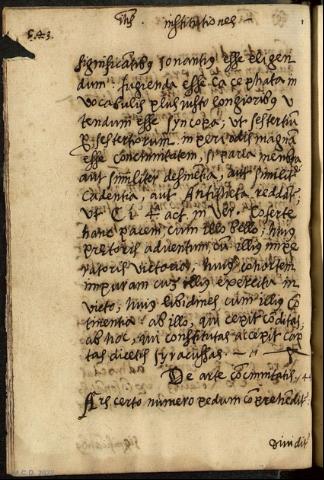 institutiones
significatibus sonantius esse eligen
dum. fugienda esse cacephata in
vocabulis plus iusto longioribus v
tendum esse syncopa; ut sestertiū
p sestertiorum. in periodis magnā
esse concinnitatem, si paria membra
aut similiter desinētia, aut similit'
cadentia, aut Antitheta reddat',
ut Ci. act. in Ver. Coferte
hanc pacem cum illo bello; huius
prætoris adventum cū illius impe
ratoris victoria, huius cohortem
impuram cū illius exercitu in
victo, huius libidines cum illius co
tinentia ab illo, qui cepit cōditas,
ab hoc, qui constitutas accepit cap
tas dicetis syracusas.
De arte cōcinnitatis.
Ars certo numero pedum coprehendit'
diuidit'